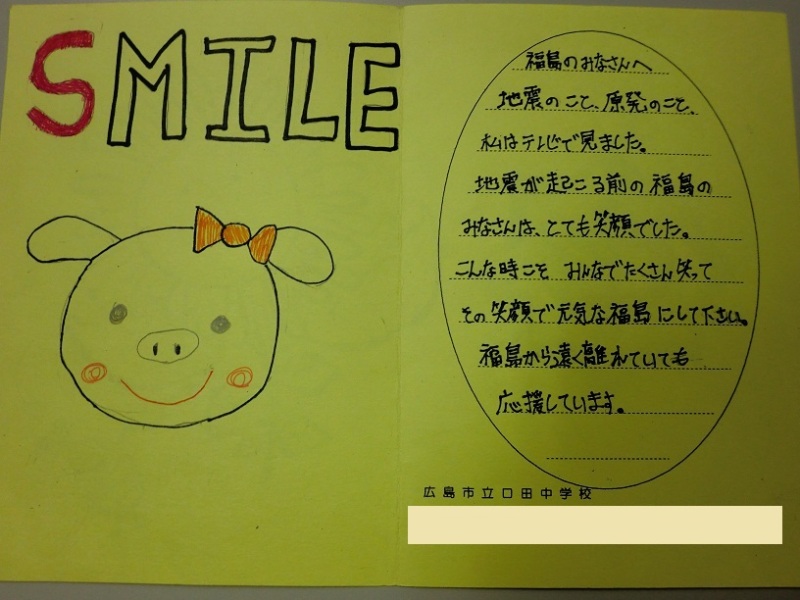 SMILE
福島のみなさんへ
地震のこと、原発のこと、
私はテレビで見ました。
地震が起こる前の福島の
みなさんは、とても笑顔でした。
こんな時こそ みんなでたくさん笑って
その笑顔で元気な福島にして下さい。
福島から遠く離れていても
応援しています。
広島市立口田中学校